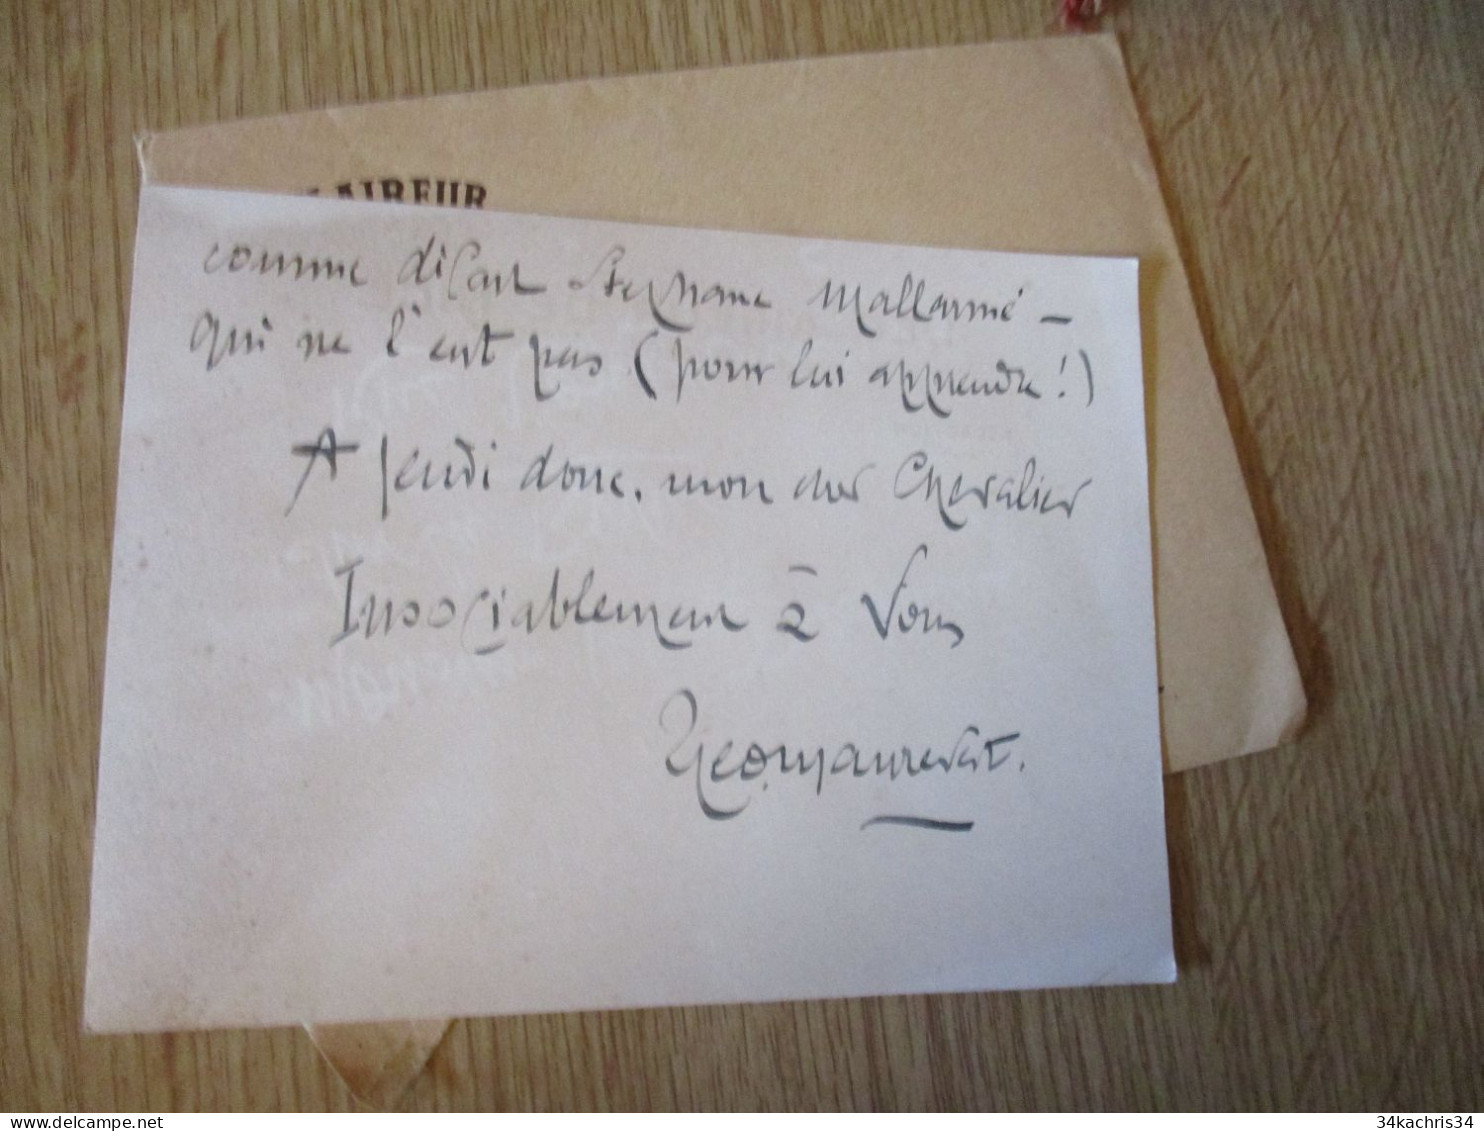 AIREUR
comme disait Stephane Mallarmé –
qui ne l'est pas (pour lui apprendre!)
A jeudi donc, mon cher Chevalier
Insociablement à Vous
34kachris34